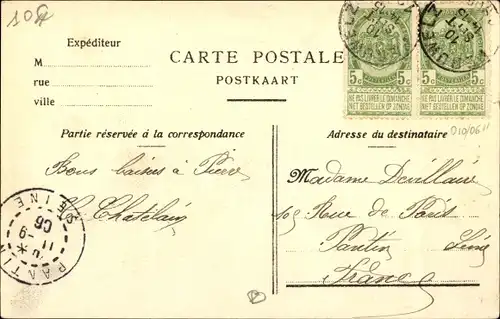 10€
Expéditeur
M
rue
ville
CARTE POSTALE
POSTKAART
5c 5c
NE PAS LIVRER LE DIMANCHE
NIET BESTELLEN OP ZONDAG
NE PAS LIVRER LE DIMANCHE
NIET BESTELLEN OP ZONDAG
Partie réservée à la correspondance
Adresse du destinataire
Bons baisers à Pierre
Chatelain
PANTIN
SEINE
11
9
06
Madame Devillaire
Rue de Paris
Pantin Seine
France